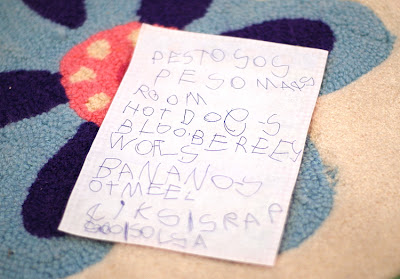 PESTOSOS
PESOMASS
ROOM
HOT DOGS
BLOOBEREEY
WOFLS
BANANOS
OTMEEL
LIKSISRAP
SOLSA